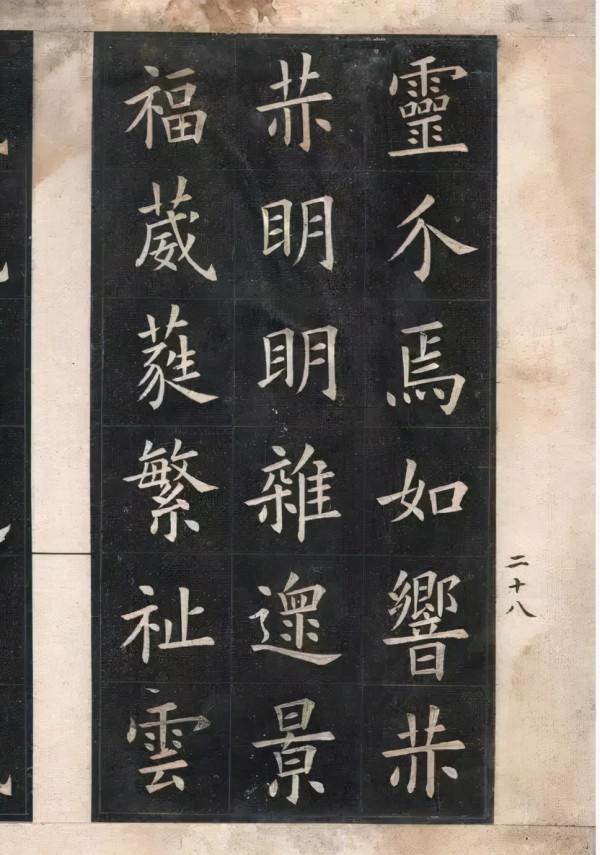 靈介焉如響赤
赤明明雜遝景
福葳蕤繁祉雲
二十八